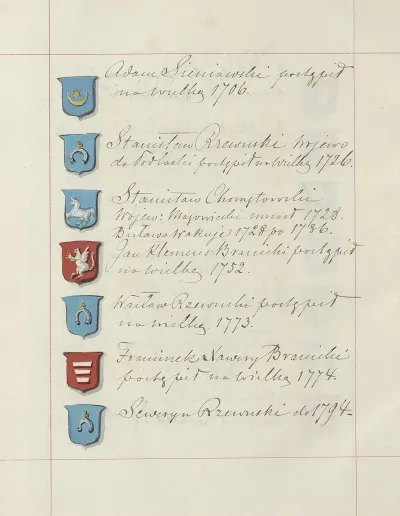 Adam Sieniawski postąpił
na wielką 1706.
Stanisław Rzewuski Wojewo
da Podlaski postąpił na wielką 1726.
Stanisław Chomętowski
Wojew: Mazowiecki umarł 1728.
Buława wakuje 1728 po 1736.
Jan Klemens Branicki postąpił
na wielką 1752.
Wacław Rzewuski postąpił
na wielką 1773.
Franciszek Xawery Branicki
postąpił na wielką 1774.
Seweryn Rzewuski do 1794